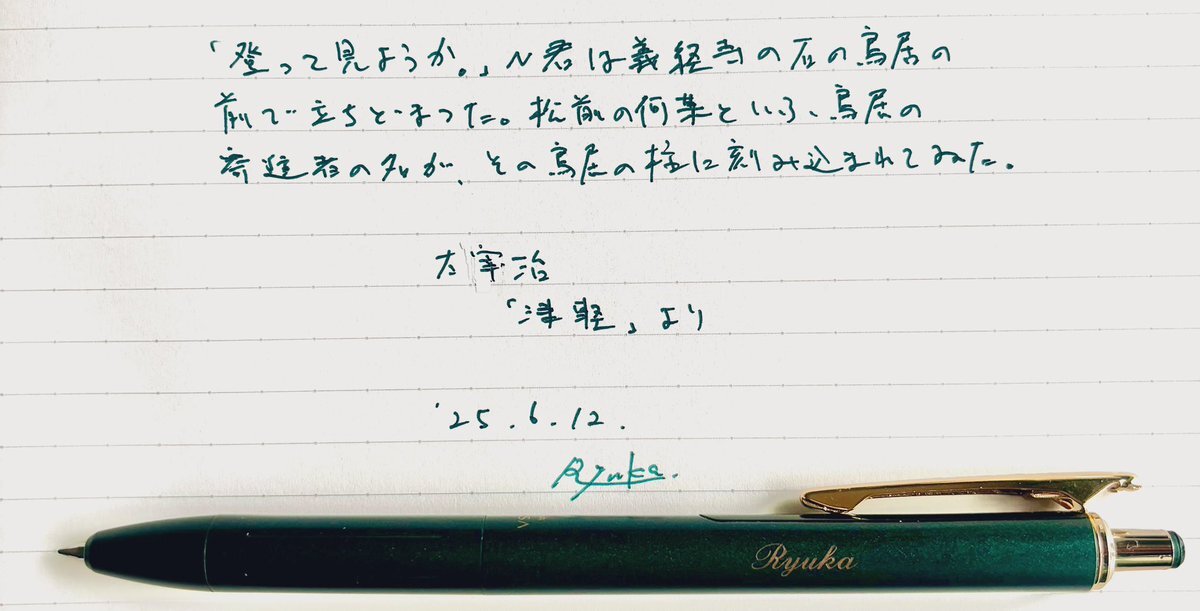 「登って見ようか。」N君は義経寺の石の鳥居の
前で立ちどまつた。松前の何某といふ、鳥居の
寄進者の名が、その鳥居の柱に刻み込まれてゐた。
太宰治
「津軽」より
'25.6.12.
Ryuka.
Ryuka